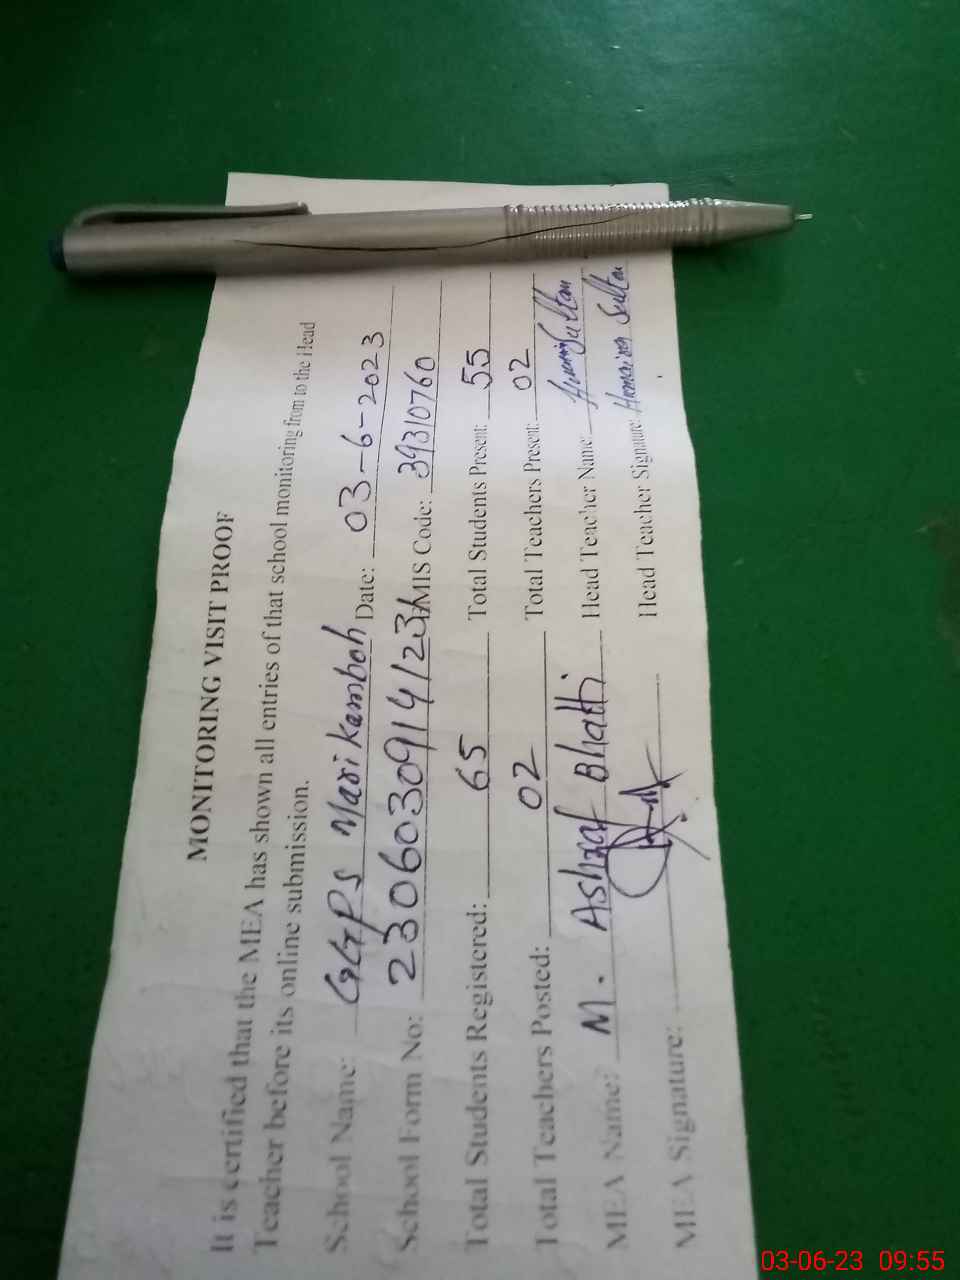 MONITORING VISIT PROOF
It is certified that the MEA has shown all entries of that school monitoring from to the Head
Teacher before its online submission.
School Name: GGPS Mari Kamboh Date: 03-6-2023
School Form No: 23060309141231 EMIS Code: 39310760
Total Students Registered: 65 Total Students Present: 55
Total Teachers Posted: 02 Total Teachers Present: 02
MEA Name: M. Ashraf Bhatti Head Teacher Name: Sultan
MEA Signature: Head Teacher Signature: Humaira Sultan
03-06-23 09:55